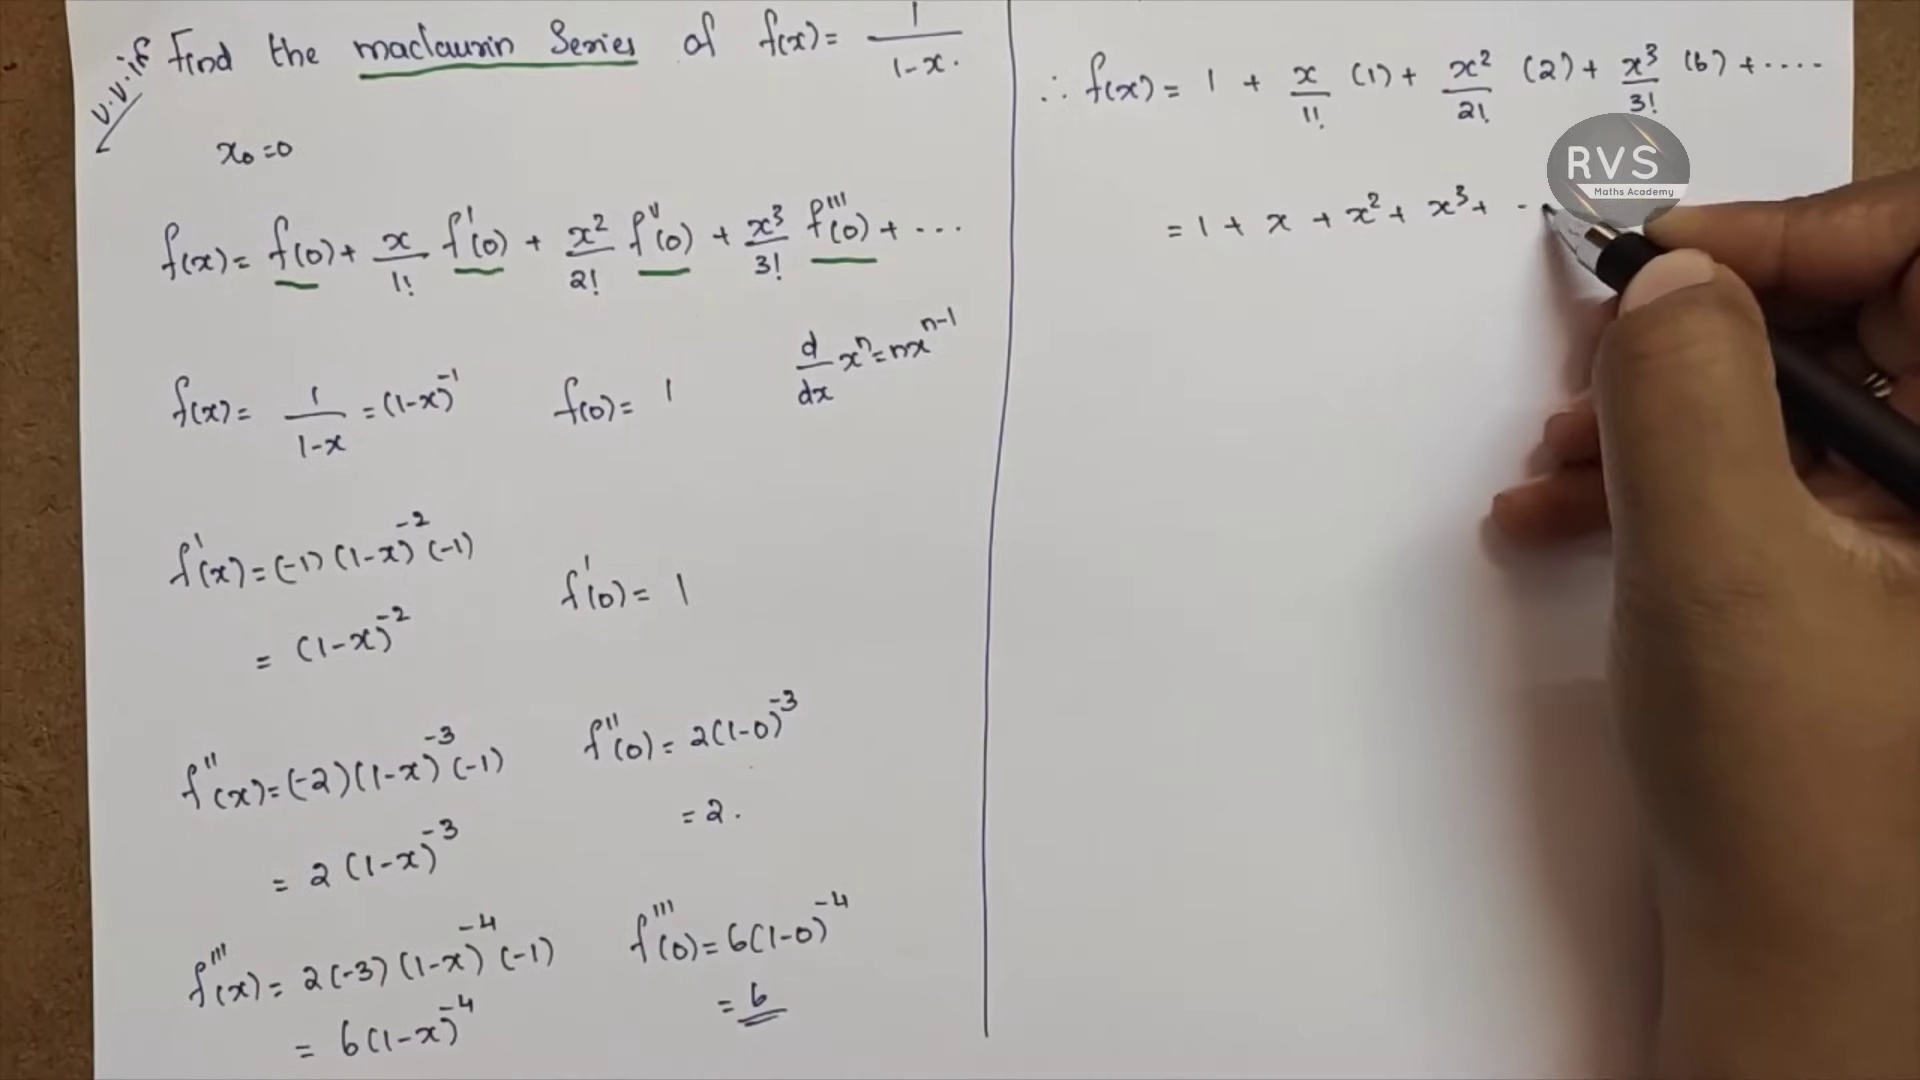 v.v.if Find the maclaurin Series of f(x) = 1/1-x.
x₀ = 0
f(x) = f(0) + x/1! f'(0) + x²/2! f''(0) + x³/3! f'''(0) + ...
d/dx xⁿ = nxⁿ⁻¹
f(x) = 1/1-x = (1-x)⁻¹ f(0) = 1
f'(x) = (-1) (1-x)⁻² (-1)
= (1-x)⁻² f'(0) = 1
f''(x) = (-2) (1-x)⁻³ (-1) f''(0) = 2(1-0)⁻³
= 2 (1-x)⁻³ = 2.
f'''(x) = 2(-3) (1-x)⁻⁴ (-1) f'''(0) = 6(1-0)⁻⁴
= 6(1-x)⁻⁴ = 6
∴ f(x) = 1 + x/1! (1) + x²/2! (2) + x³/3! (6) + ....
= 1 + x + x² + x³ + -
RVS
Maths Academy